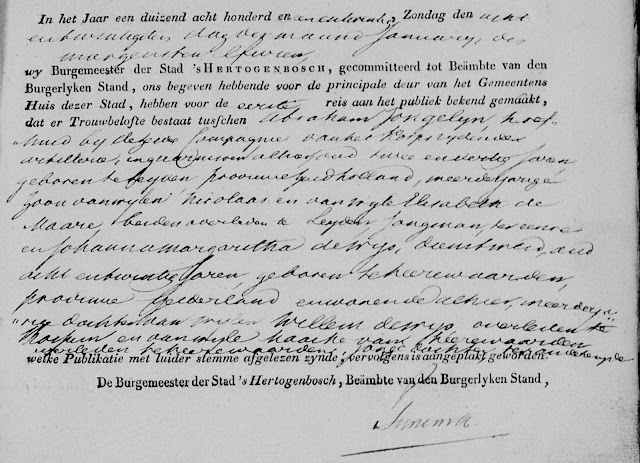 In het Jaar een duizend acht honderd en eenentwintig Zondag den acht
entwintigsten dag der maand January, des
morgens ten
wy Burgemeester der Stad 's HERTOGENBOSCH, gecommitteerd tot Beämbte van den
Burgerlyken Stand, ons begeven hebbende voor de principale deur van het Gemeentens
Huis dezer Stad, hebben voor de eerste reis aan het publiek bekend gemaakt,
dat er Trouwbelofte bestaat tusschen Abraham Jongelyn, hoef
smid by de Compagnie van het Korps rydende
artillerie, in garnizoen alhier, oud twee en dertig Jaren,
geboren te Leyden provincie Zuidholland, meerderjarige
zoon van wylen Nicolaas en van wyle Elisabeth de
Maare, beiden overleden te Leyden Jongman, ter eenre
en Johanna Margaretha de Wys, dienstmeid, oud
acht entwintig Jaren, geboren te heerewaarden,
provincie Gelderland en wonende alhier, meerderja
rige dochter van wylen Willem de Wys, overleden te
Rossum en van wyle Maaike van heerewaarden
overleden te heerewaarden, Jonge dochter ter andere zyde
welke Publikatie met luider stemme afgelezen zynde, vervolgens is aangeplakt geworden.
De Burgemeester der Stad 's Hertogenbosch, Beämbte van den Burgerlyken Stand,